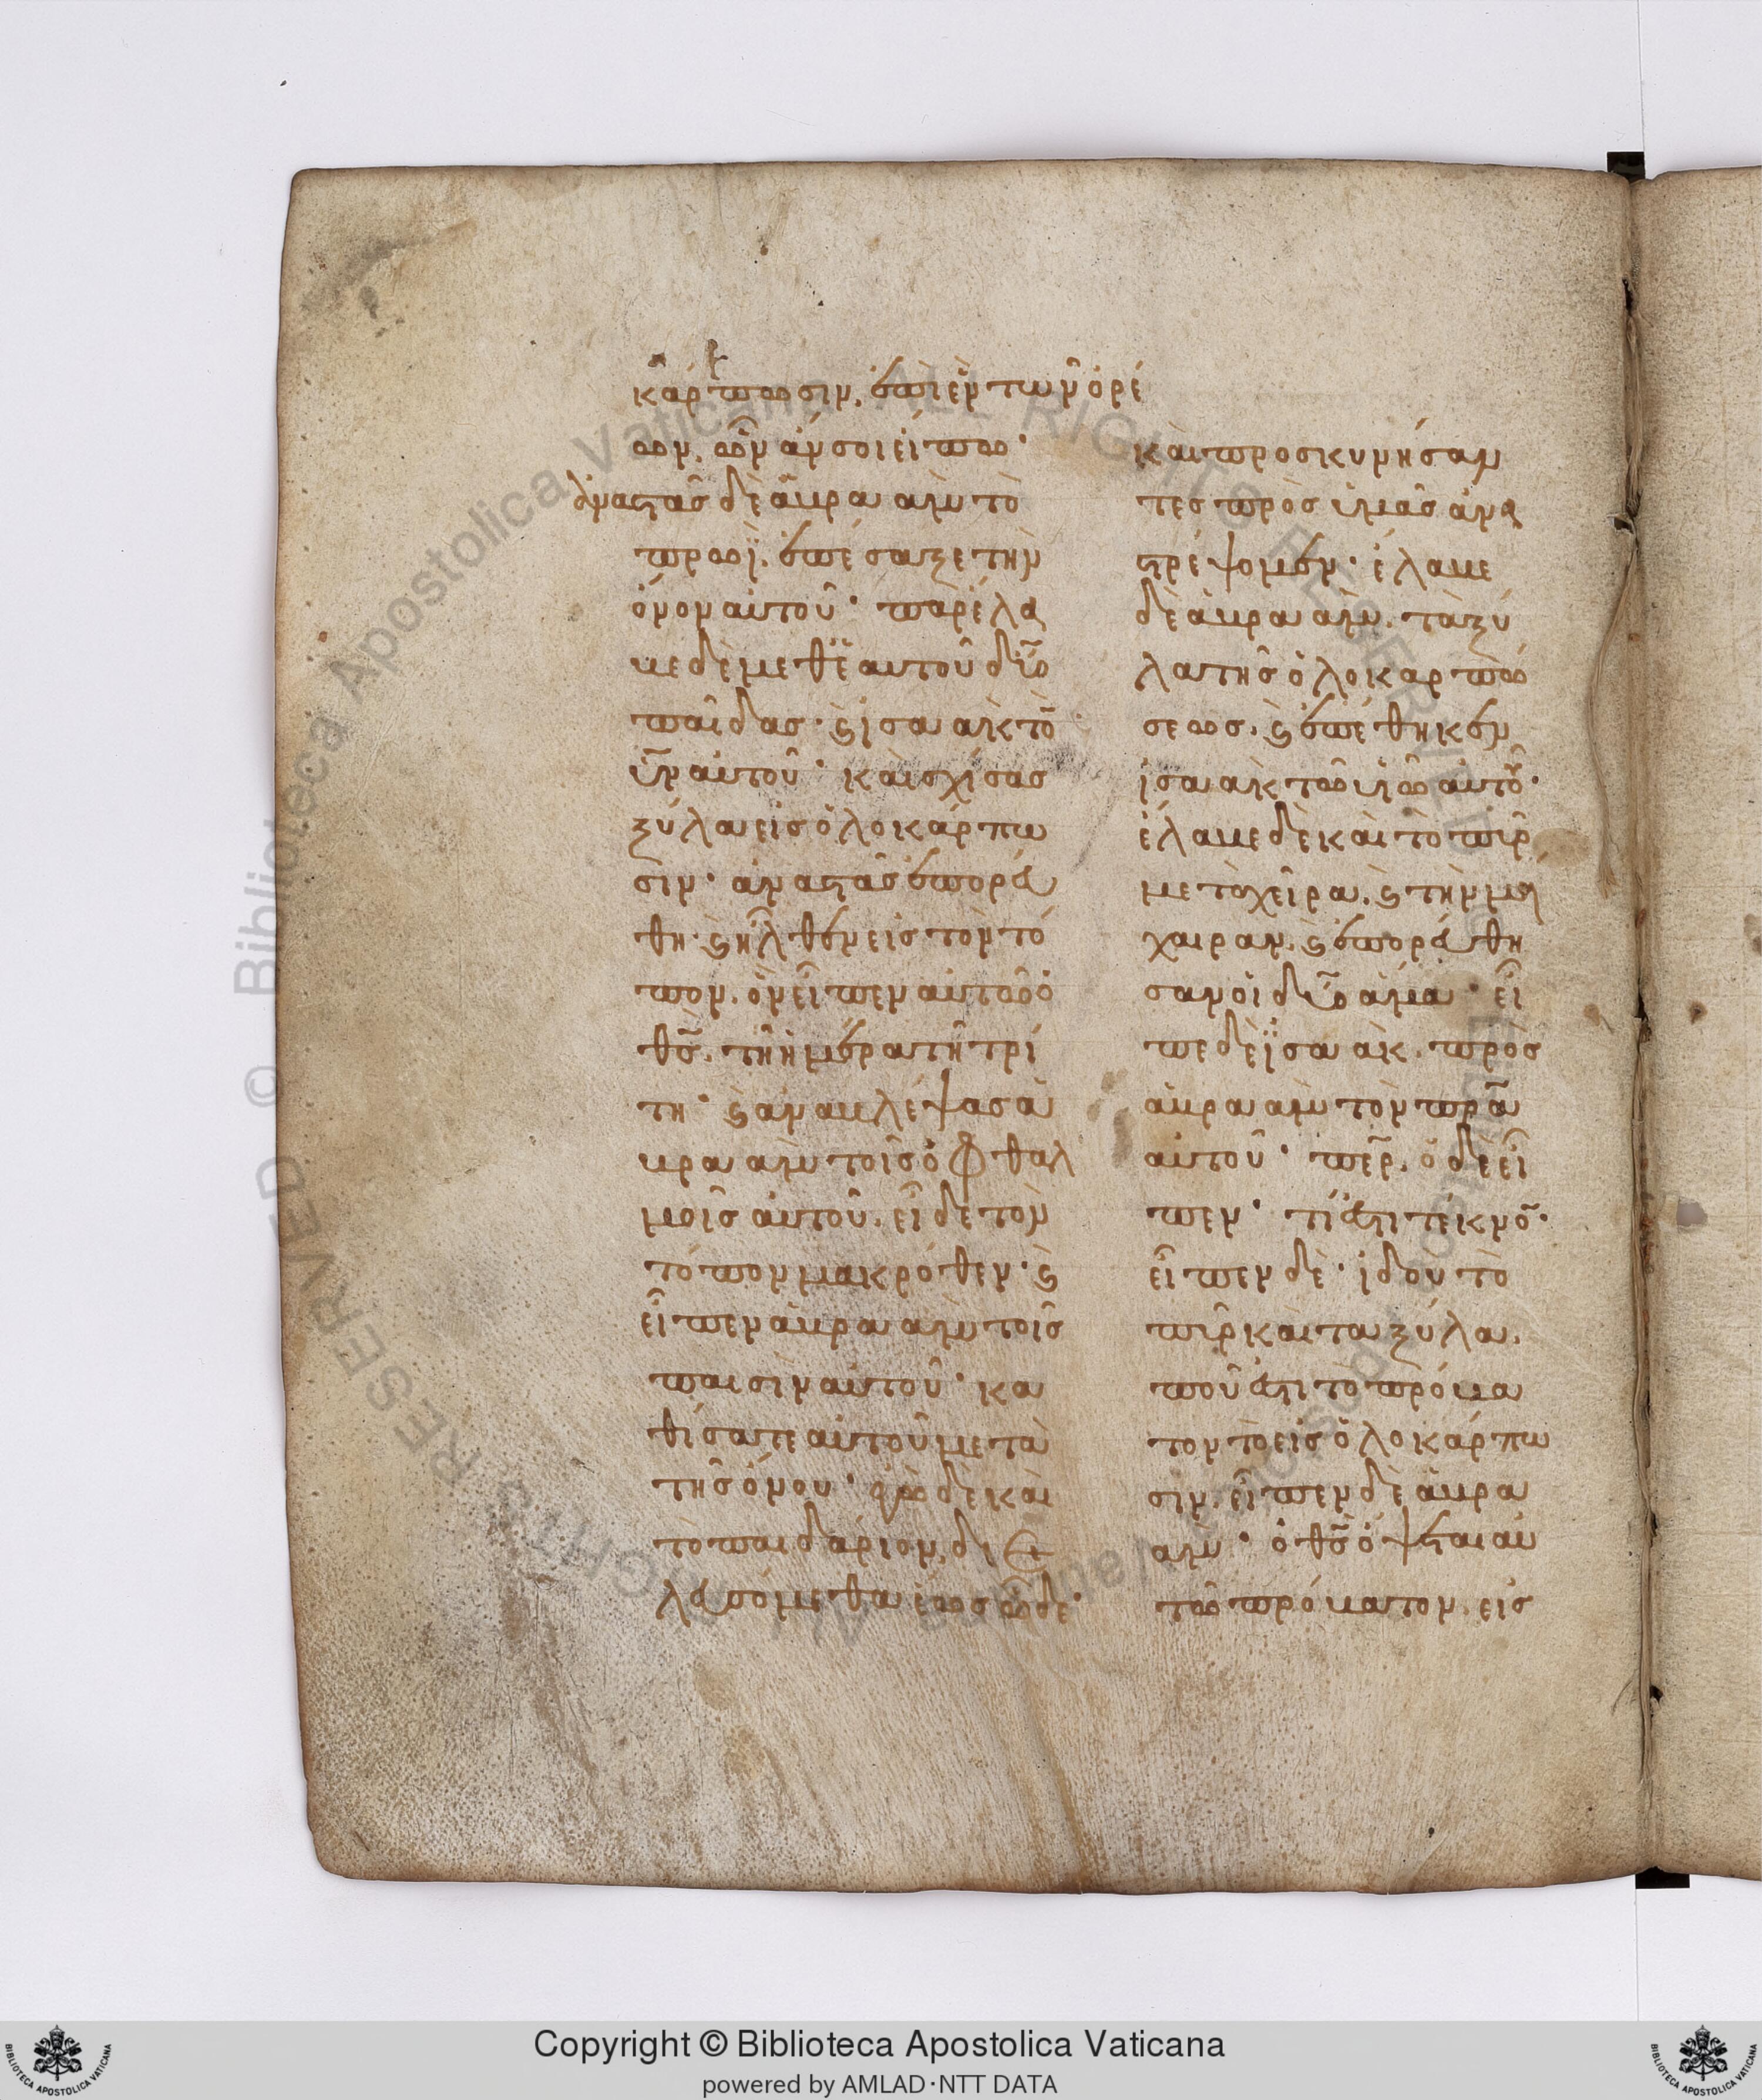 κάρπωσιν, ἐπὶ ἓν τῶν ὀρέ
ων, ὧν ἄν σοι εἴπω·
ἀναστὰς δὲ ἁβραὰμ τὸ
πρωῒ, ἐπέσαξε τὴν
ὄνον αὐτοῦ· παρέλα
βε δὲ μεθ ἑαυτοῦ δύο
παῖδας· ϗ ἰσαὰκ τὸν
υν αὐτοῦ· καὶ σχίσας
ξύλα εἰς ὁλοκάρπω
σιν· ἀναστὰς ἐπορεύ
θη· ϗ ἦλθεν εἰς τὸν τό
πον, ὃν εἶπεν αὐτῶ ὁ
θς, τῆ ἡμέρα τῆ τρί
τη· ϗ ἀναβλέψας ἁ
βραὰμ τοῖς ὀφθαλ
μοῖς αὐτοῦ, εἶδε τὸν
τόπον μακρόθεν· ϗ
εἶπεν ἁβραὰμ τοῖς
παισὶν αὐτοῦ· κα
θίσατε αὐτοῦ μετὰ
τῆς ὄνου· ἐγὼ δὲ καὶ
τὸ παιδάριον, διε
λευσόμεθα ἕως ὧδε·
καὶ προσκυνήσαν
τες πρὸς ὑμᾶς ἀνα
στρέψομεν· ἔλαβε
δὲ ἁβραὰμ, τὰ ξύ
λα τῆς ὁλοκαρπώ
σεως, ϗ ἐπέθηκεν
ἰσαὰκ τῶ υἱῶ αὐτοῦ·
ἔλαβε δὲ καὶ τὸ πῦρ
μετὰ χεῖρα, ϗ τὴν μά
χαιραν, ϗ ἐπορεύθη
σαν οἱ δύο ἅμα· εἶ
πε δὲ ἰσαὰκ, πρὸς
ἁβραὰμ τὸν πρα
αὐτοῦ· περ, ὁ δὲ εἶ
πεν· τί ἐστι τέκνον·
εἶπεν δὲ· ἰδοὺ τὸ
πῦρ καὶ τὰ ξύλα,
ποῦ ἐστι τὸ πρόβα
τον τὸ εἰς ὁλοκάρπω
σιν, εἶπεν δὲ ἁβρα
ὰμ· ὁ θς ὄψεται αὑ
τῶ πρόβατον, εἰς
Copyright © Biblioteca Apostolica Vaticana
powered by AMLAD·NTT DATA